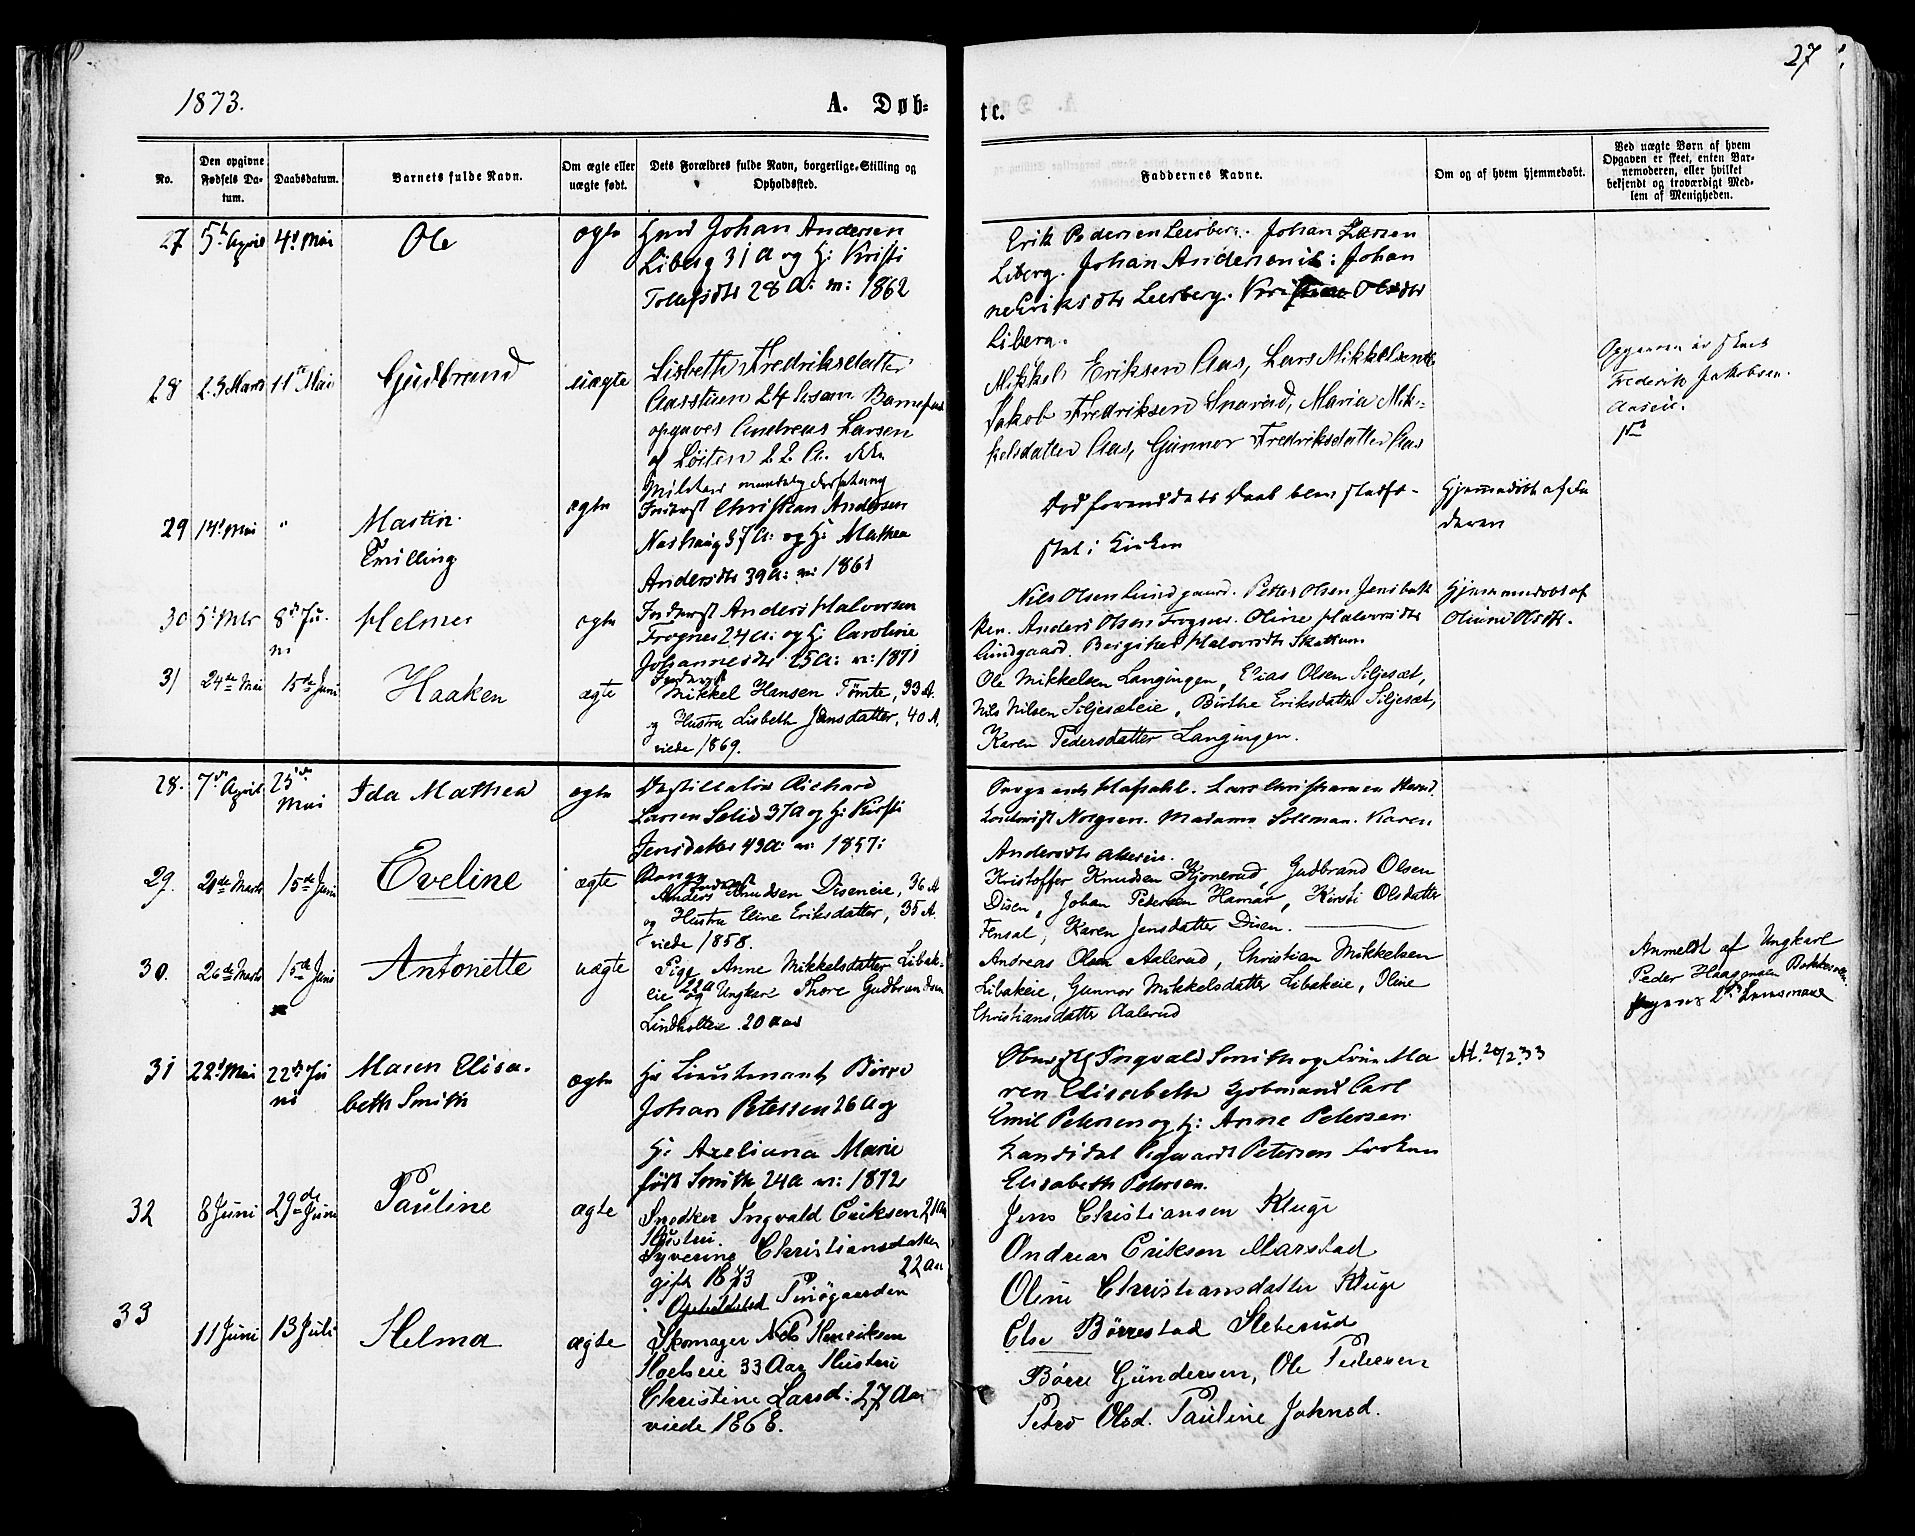 27
1873.
A. Døb-
te.
No.
Den opgivne Fødsels Datum.
Daabsdatum.
Barnets fulde Navn.
Om ægte eller uægte født.
Dets Forældres fulde Navn, borgerlige Stilling og Opholdssted.
Faddernes Navne.
Om og af hvem hjemmedøbt.
Ved uægte Børn af hvem Opgaven er skeet, enten Barnemoderen, eller hvilket bekjendt og troværdigt Medlem af Menigheden.
27 5t April 4d Mai Ole ægte
Johan Andersen
Liberg 31 A og H: Kristi
28 A: v: 1862
Erik Pedersen Leerberg. Johan Larsen
Liberg. Johan Andersen ib: Johan
ne Eriksdtr Leerberg. Olsdtr
Liberg.
28 23 Marts 11te Mai Gudbrand uægte
Lisbeth Fredriksdatter
Aasstuen 24
opgaves Andreas Larsen
af Løiten 22 A.
Mikkel Eriksen Aas, Lars Mikkelsen
Jakob Fredriksen Snarud, Maria Mik-
kelsdatter Aas, Gunnor Fredriksdatter Aas
Opgaven er skeet
Frederik Jakobsen
29 14d Mai " Martin ægte
Tvilling
Christian Andersen
Nashaug 37 A: og H: Mathea
Andersdtr 39 A: v: 1861
Død forend dets Daab blev stadfæ-
stet i Kirken
Hjemmedøbt af Fa
deren
30 5t 8de Ju- Helmer ægte
ni
Anders Halvorsen
Frogner 24 A: og H: Caroline
Johannesdtr 25 A: v: 1871
Nils Olsen Lundgaard. Petter Olsen Jensbak
ken. Anders Olsen Frogner. Oline Halvorsdtr
Lundgaard. Halvorsdtr Skattum
Hjemmedøbt af
Oline Olsdtr.
31 24de Mai 15de Juni Haaken ægte
Inderst
Mikkel Hansen Tømte, 33 A.
og Hustru Lisbeth Jensdatter, 40 A.
viede 1869.
Ole Mikkelsen Langingen, Elias Olsen Siljesæt,
Nils Nilsen Siljesæteie, Birthe Eriksdatter Siljesæt,
Karen Pedersdatter Langingen.
28. 7de April 25de Ida Mathea ægte
Mai
Destillatør Richard
Larsen 37 A og H: Kirsti
Jensdatter 43 A: v: 1857:
Madame Karen
29. 21de Marts 15de Juni Eveline ægte
Anders Knudsen Diseneie, 36 A
og Hustru Eline Eriksdatter, 35 A.
viede 1858.
Kristoffer Knudsen Kjonerud, Gudbrand Olsen
Disen, Johan Pedersen Hamar, Kirsti Olsdatter
Fensal, Karen Jensdatter Disen.
30. 26de Marts 15de Juni Antonette uægte
Pige Anne Mikkelsdatter Libak-
eie 22 A og Ungkarl Thore Gudbrandsen
Lindholteie 20 Aar
Andreas Olsen Aalerud, Christian Mikkelsen
Libakeie, Gunnor Mikkelsdatter Libakeie, Oline
Christiansdatter Aalerud
Anmeldt af Ungkarl
Peder Haagensen Bakkeeie
31 22d Mai 22de Ju Maren Elisa- ægte
ni beth Smith
Hr Lieutenant Børre
Johan Petersen 26 A og
H: Axeliana Marie
født Smith 24 A v: 1872
Ingvald Smith og Frue Ma
ren Elisabeth Kjøbmand Carl
Emil Petersen og H: Anne Petersen
Kandidat Sigwardt Petersen Frøken
Elisabeth Petersen.
At. 20/2 33
32 8 Juni 29de Juni Pauline ægte
Snedker Ingvald Eriksen 21 Aar
Hustru
Syverine Christiansdatter
gift 1873 22 Aar
Opholdsted
Jens Christiansen Kluge
Andreas Eriksen Marstad
Oline Christiansdatter Kluge
Else Børrestad Sleberud
33 11 Juni 13 Juli Helma ægte
Skomager Nels Henriksen
Hoelseie 33 Aar Hustru
Christine Larsd: 27 Aar
viede 1868.
Børre Gundersen, Ole Pedersen
Petro Olsd. Pauline Johnsd.